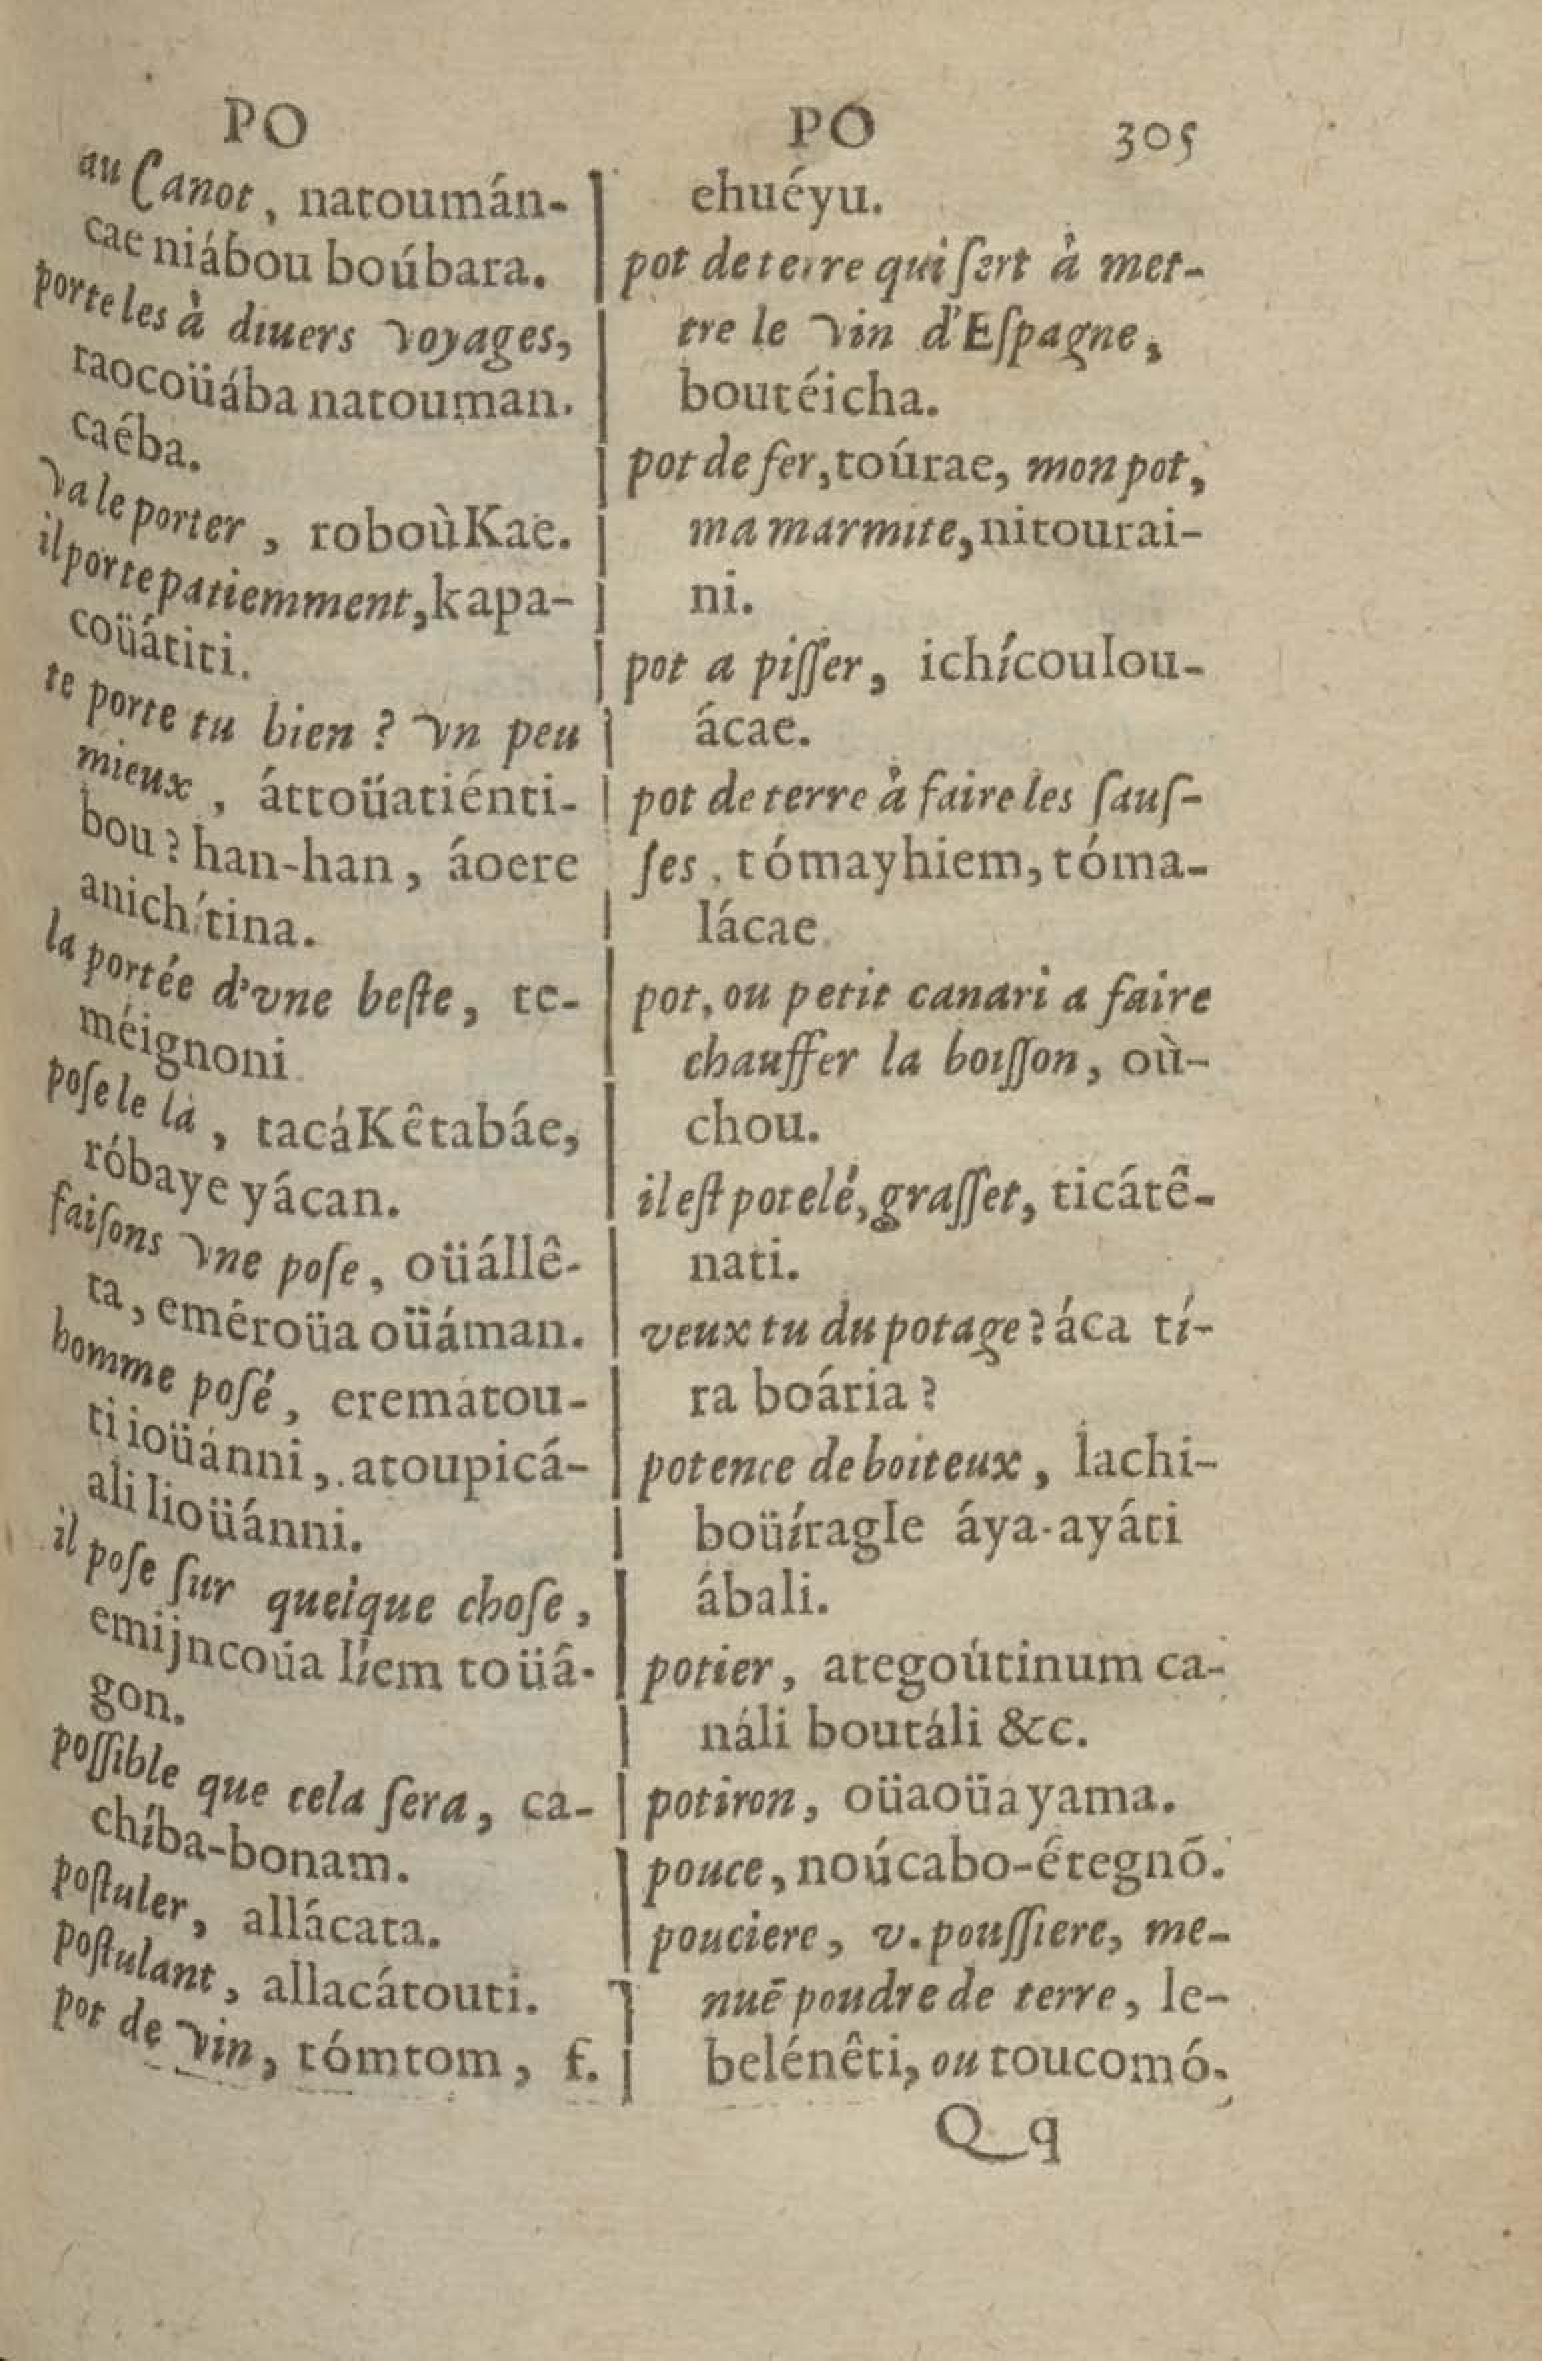 PO
au Canot, natoumán-
cae niábou boúbara.
porte les à diuers voyages,
taocoüába natouman.
caéba.
va le porter, roboùKae.
il porte patiemment, kapa-
coüátiti.
te porte tu bien ? vn peu
mieux, áttoüatiénti-
bou ? han-han, áoere
anichítina.
la portée d'vne beſte, te-
méignoni
poſe le là, tacáKêtabáe,
róbaye yácan.
faiſons vne poſe, oüállê-
ta, eméroüa oüáman.
homme poſé, erematou-
ti ioüánni, atoupicá-
ali lioüánni.
il poſe ſur quelque choſe,
emijncoúa líem toüâ-
gon.
poſſible que cela ſera, ca-
chíba-bonam.
poſtuler, allácata.
poſtulant, allacátouti.
pot de vin, tómtom, f.
PO 305
ehuéyu.
pot de terre qui ſert à met-
tre le vin d'Eſpagne,
boutéicha.
pot de fer, toúrae, mon pot,
ma marmite, nitourai-
ni.
pot a piſſer, ichícoulou-
ácae.
pot de terre à faire les ſauſ-
ſes, tómayhiem, tóma-
lácae.
pot, ou petit canari a faire
chauffer la boiſſon, où-
chou.
il eſt potelé, graſſet, ticátê-
nati.
veux tu du potage ? áca tí-
ra boária ?
potence de boiteux, lachi-
boüíragle áya-ayáti
ábali.
potier, ategoútinum ca-
náli boutáli &c.
potiron, oüaoüayama.
pouce, noúcabo-étegnõ.
pouciere, v. pouſſiere, me-
nuë poudre de terre, le-
belénêti, ou toucomó-
Qq